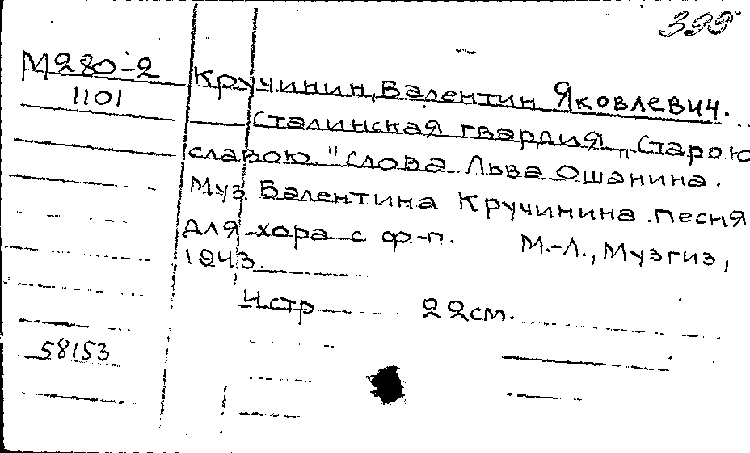 399
М280-2
1101
Кручинин, Валентин Яковлевич.
Сталинская гвардия „Старою
славою." Слова Льва Ошанина.
Муз Валентина Кручинина. Песня
для хора с ф-п. М.-Л., Музгиз,
1943.
4 стр 22см.
58153